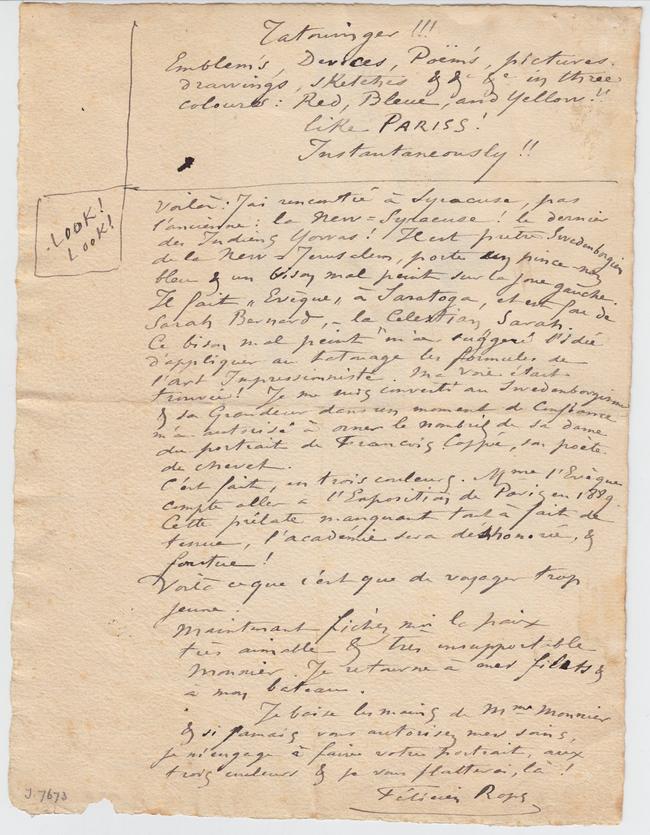 Tatouinger !!!
Emblems, Devices, Poëms, pictures.
drawings, sketches & &c &c in three
coloures: Red, Bleue, and Yellow!!
like PARISS!
Instantaneously!!
LOOK!
LOOK!
Voilà: J'ai rencontré à Syracuse, pas
l'ancienne: la New=Syracuse! le dernier
des Indiens Yovvas! Il est prêtre Swedenborgien
de la New=Jerusalem, porte un pince nez
bleu & un bison mal peint sur la joue gauche.
Il fait „Evèque„ à Saratoga, et est fou de
Sarah Bernard, – la Celestian Sarah.
Ce bison mal peint m'a suggéré l'idée
d'appliquer au tatouage les formules de
l'art Impressionniste. Ma voie était
trouvée! Je me suis converti au Swedenborgisme
& sa Grandeur dans un moment de confiance
m'a autorisé à orner le nombril de sa dame
du portrait de Francois Coppe, son poete
de chevet.
C'est fait, en trois couleurs. Mme l'Evèque
compte aller à l'Exposition de Paris en 1889.
Cette prélate manquant tout à fait de
tenue, l'académie sera déshonorée, &
foutue!
Voilà ce que c'est que de voyager trop
jeune.
Maintenant fichez moi la paix
très aimable & très insupportable
Monnier. Je retourne à mes filets &
à mon bateau.
Je baise les mains de Mme Monnier
& si jamais vous autorisez mes soins,
je m'engage à faire votre portrait, aux
trois couleurs & je vous flatterai, là!
Félicien Rops
J. 7673